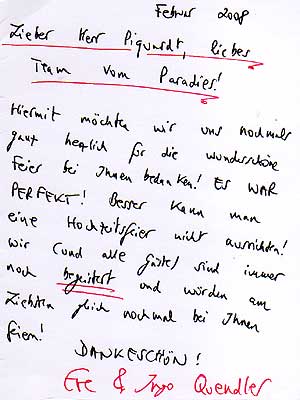 Februar 2008
Lieber Herr Piquardt, liebes
Team vom Paradies!
Hiermit möchten wir uns nochmals
ganz herzlich für die wunderschöne
Feier bei Ihnen bedanken! ES WAR
PERFEKT! Besser kann man
eine Hochzeitsfeier nicht ausrichten!
Wir (und alle Gäste) sind immer
noch begeistert und würden am
Liebsten gleich nochmal bei Ihnen
feiern!
DANKESCHÖN!
& Ingo Quendler